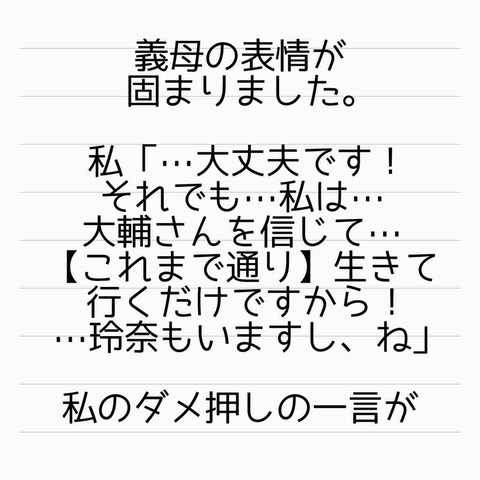 義母の表情が
固まりました。
私「…大丈夫です！
それでも…私は…
大輔さんを信じて…
【これまで通り】生きて
行くだけですから！
…玲奈もいますし、ね」
私のダメ押しの一言が